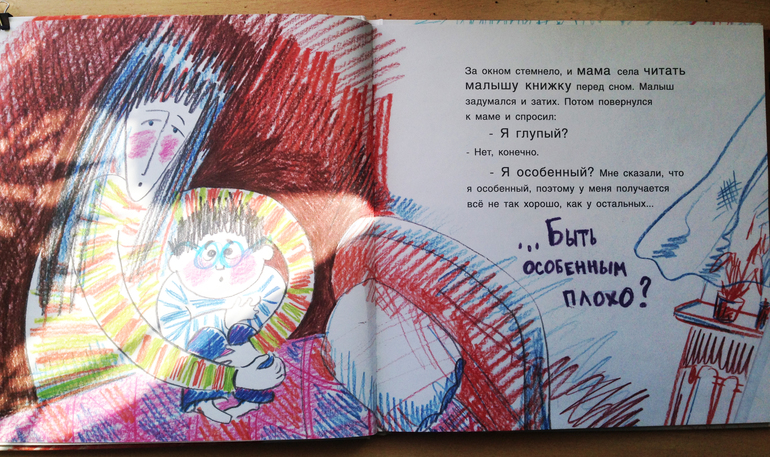 За окном стемнело, и мама села читать
малышу книжку перед сном. Малыш
задумался и затих. Потом повернулся
к маме и спросил:
- Я глупый?
- Нет, конечно.
- Я особенный? Мне сказали, что
я особенный, поэтому у меня получается
всё не так хорошо, как у остальных...
...Быть
особенным
плохо?